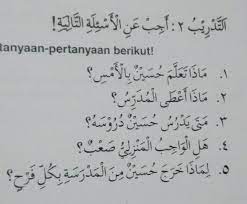 اَلتَّدْرِيْبُ ٢: أَجِبْ عَنِ الْأَسْئِلَةِ التَّالِيَةِ!
tanyaan-pertanyaan berikut!
١. مَاذَا تَعَلَّمَ حُسَيْنٌ بِالْأَمْسِ؟
٢. مَاذَا أَعْطَى الْمُدَرِّسُ؟
٣. مَتَى يَدْرُسُ حُسَيْنٌ دُرُوْسَهُ؟
٤. هَلِ الْوَاجِبُ الْمَنْزِلِيُّ صَعْبٌ؟
٥. لِمَاذَا خَرَجَ حُسَيْنٌ مِنَ الْمَدْرَسَةِ بِكُلِّ فَرَحٍ؟